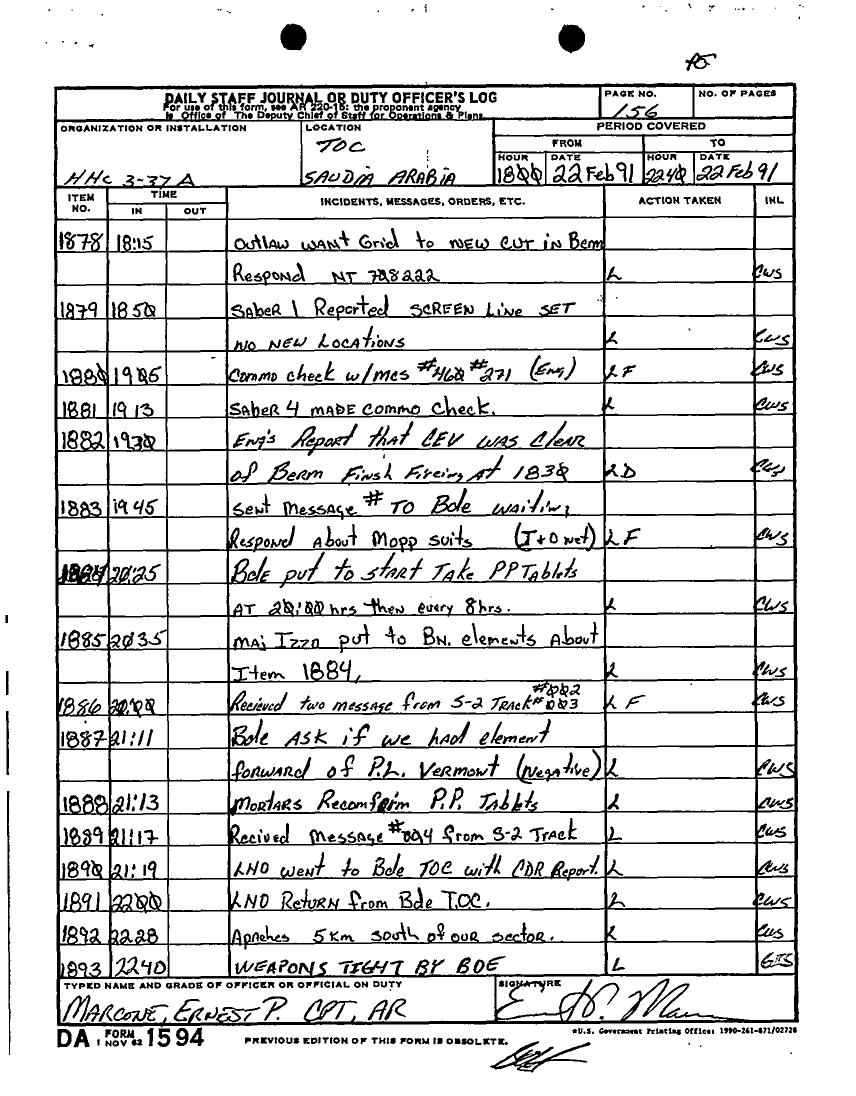 DAILY STAFF JOURNAL OR DUTY OFFICER'S LOG
For use of this form, see AR 220-15; the proponent agency
is Office of The Deputy Chief of Staff for Operations & Plans
PAGE NO.
156
NO. OF PAGES
ORGANIZATION OR INSTALLATION
HHC 3-37 A
LOCATION
TOC
SAUDIA ARABIA
PERIOD COVERED
FROM TO
HOUR DATE HOUR DATE
1800 22 Feb 91 2240 22 Feb 91
ITEM NO. TIME INCIDENTS, MESSAGES, ORDERS, ETC. ACTION TAKEN INL
IN OUT
1878 18:15 OUTLAW WANT Grid to NEW CUT IN Berm
Respond NT 708222 L CWS
1879 1850 SABER 1 Reported SCREEN LINE SET
NO NEW LOCATIONS L CWS
1880 1905 Commo check w/mes #460 #271 (Eng) LF CWS
1881 1913 SABER 4 MADE COMMO CHECK. L CWS
1882 1930 ENG'S Report that CEV WAS Clear
of Berm Finsh Fireing At 1830 LD CWS
1883 1945 SENT MESSAGE # TO Bde waiting
Respond About Mopp suits (I+O net) LF CWS
1884 20:25 Bde put to start Take PP Tablets
AT 20:00 hrs then every 8hrs. L CWS
1885 2035 MAJ Izzo put to BN. elements About
Item 1884, L CWS
1886 20:00 Recieved two message from S-2 Track #002 #003 LF CWS
1887 21:11 Bde ASK if we had element
forward of P.L. Vermont (Negative) L CWS
1888 21:13 MORTARS Recomfirm P.P. Tablts L CWS
1889 21:17 Recived Message #004 from S-2 Track L CWS
1890 21:19 LNO went to Bde TOC with CDR Report. L CWS
1891 2200 LNO Return from Bde T.O.C. L CWS
1892 2228 Apaches 5km south of our sector. L CWS
1893 2240 WEAPONS TIGHT BY BDE L GTS
TYPED NAME AND GRADE OF OFFICER OR OFFICIAL ON DUTY
MARCONE, ERNEST P. CPT, AR
SIGNATURE
DA FORM 1 NOV 62 1594
PREVIOUS EDITION OF THIS FORM IS OBSOLETE.
*U.S. Government Printing Office: 1990-261-871/02728